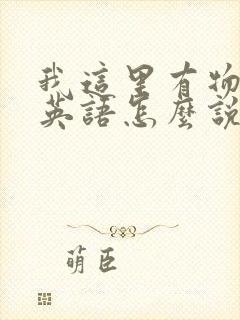 我這里有物
英語怎麼說
萌臣